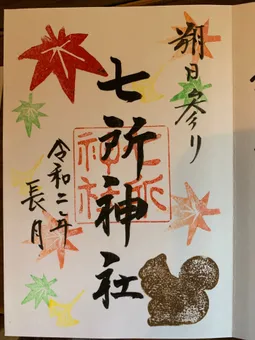 朔日参り
七所神社
七所
神社
令和二年
長月